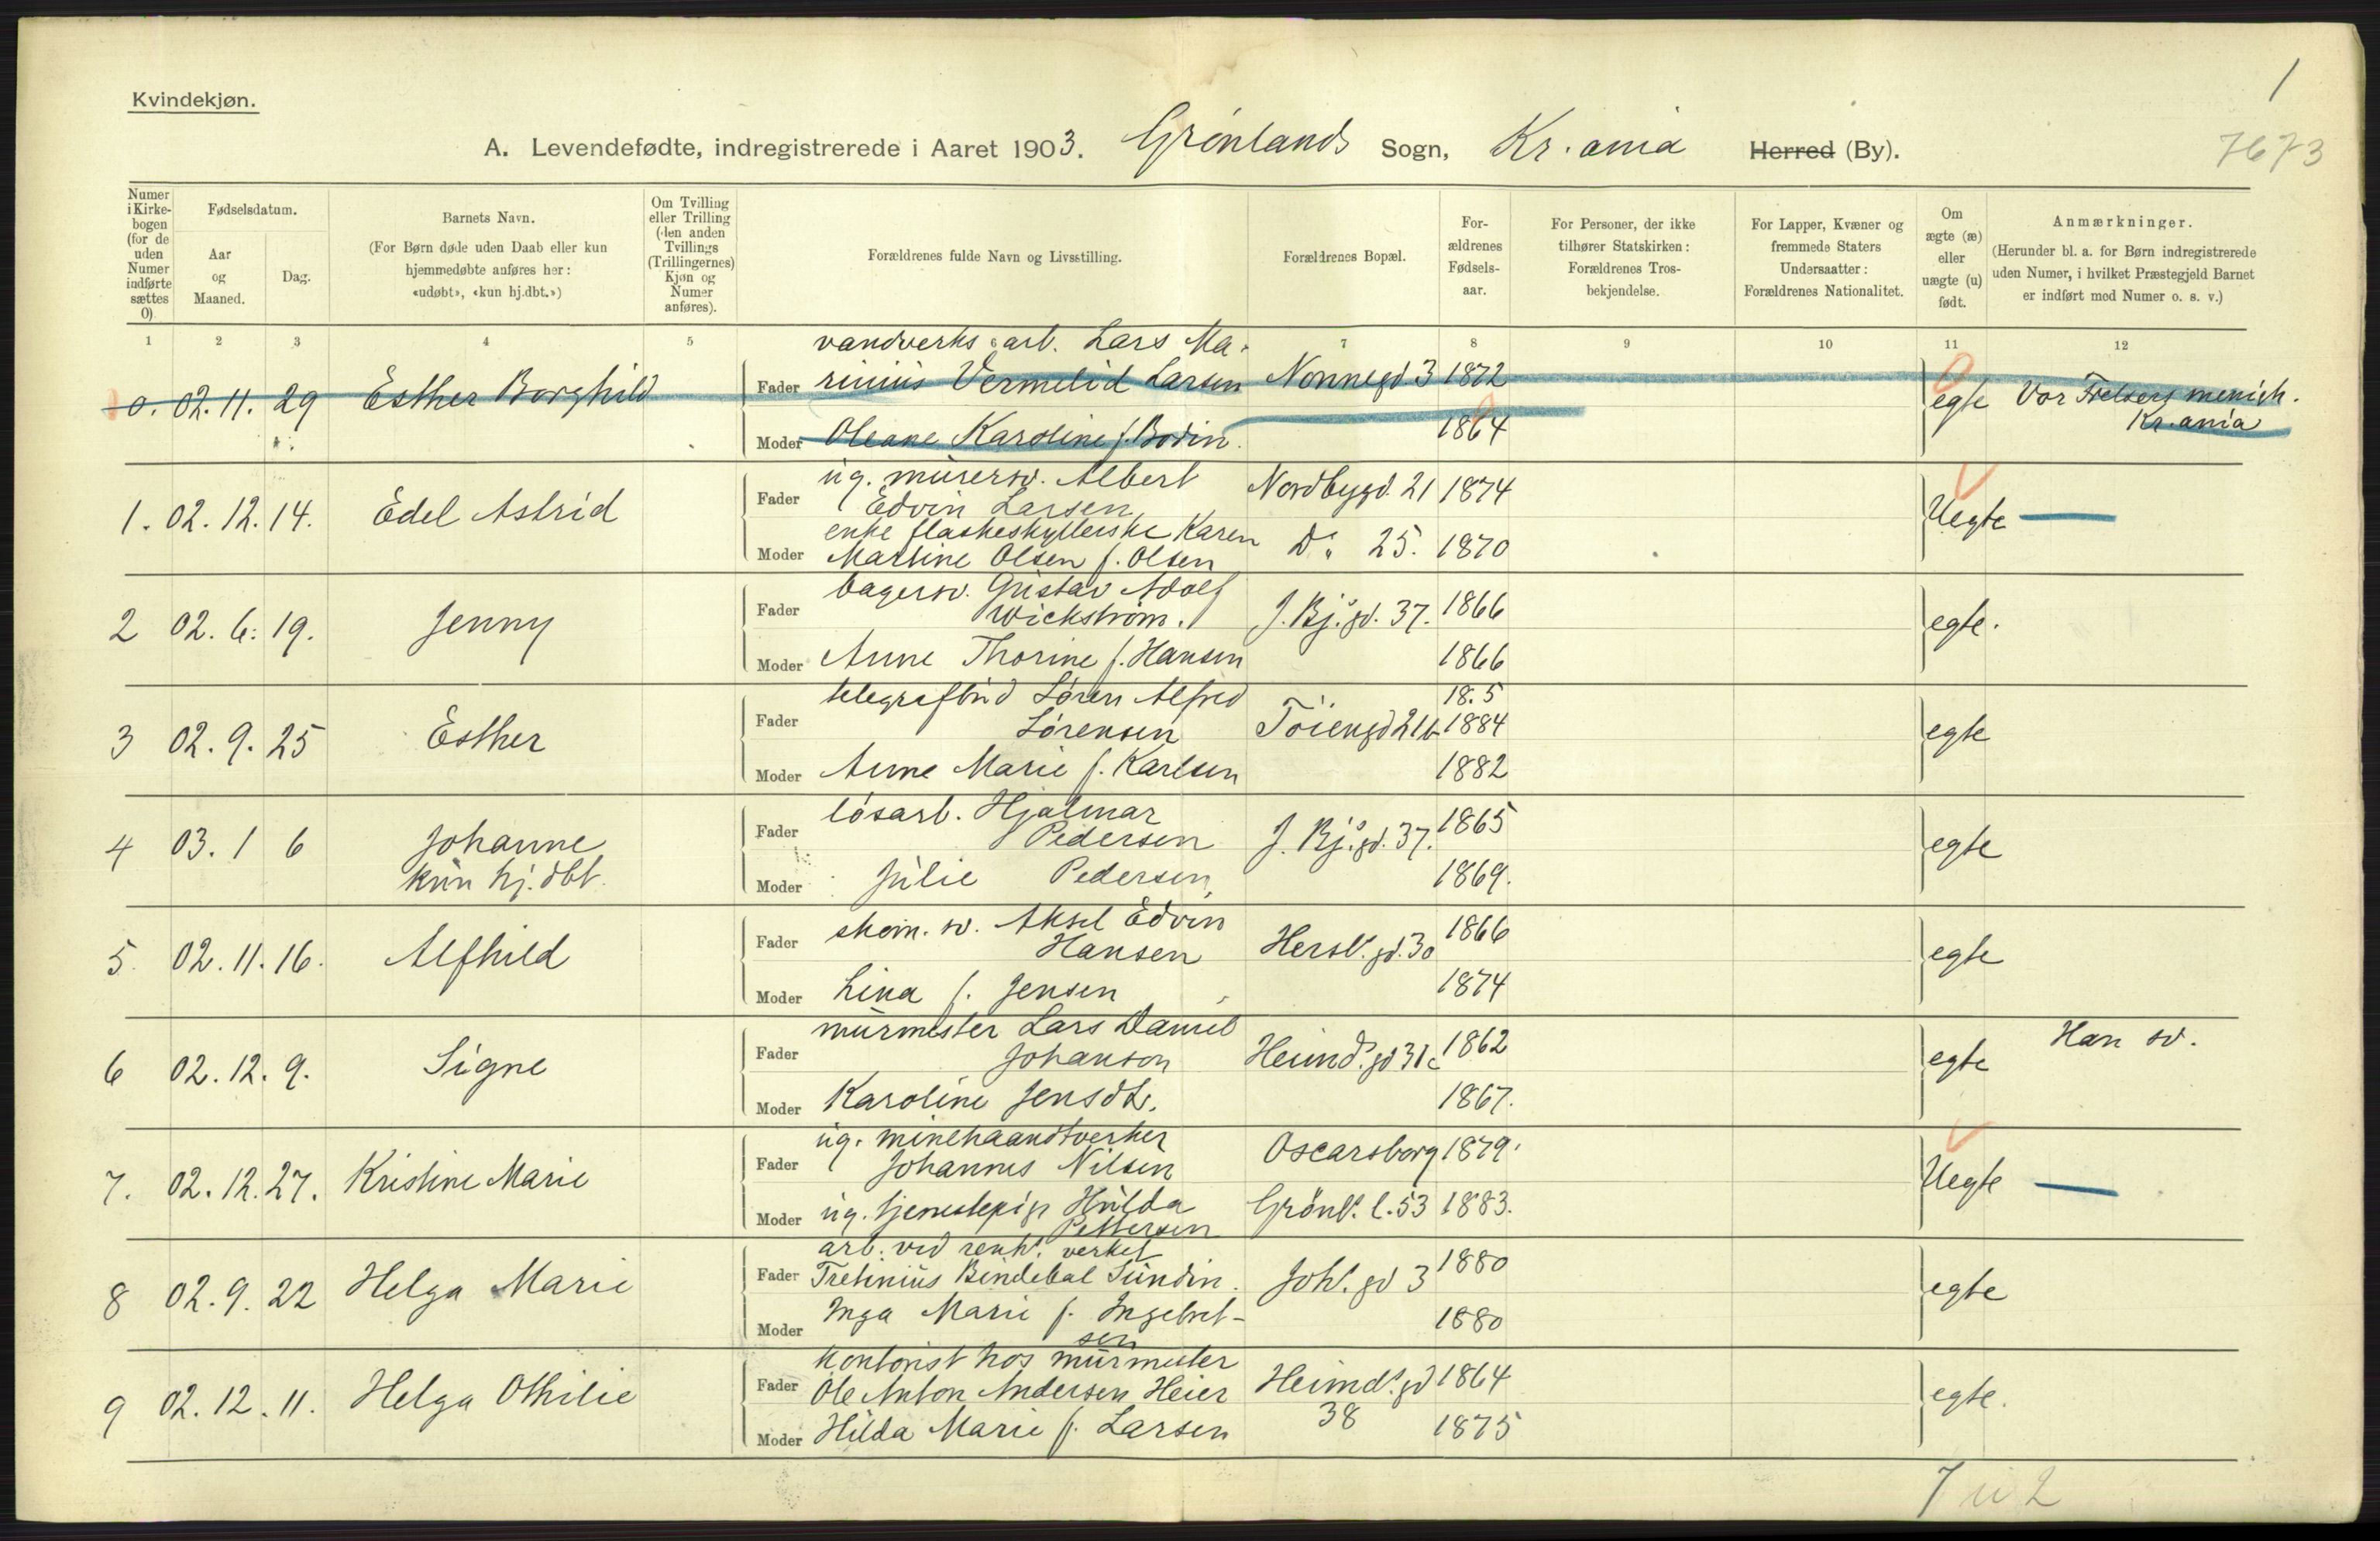 1
Kvindekjøn.
A. Levendefødte, indregistrerede i Aaret 1903. Grønlands Sogn, Kr.ania Herred (By).
7673
Numer i Kirkebogen (for de uden Numer indførte sættes 0)
Fødselsdatum.
Aar og Maaned.
Dag.
Barnets Navn.
(For Børn døde uden Daab eller kun hjemmedøbte anføres her: «udøbt», «kun hj.dbt.»)
Om Tvilling eller Trilling (den anden Tvillings (Trillingernes) Kjøn og Numer anføres).
Forældrenes fulde Navn og Livsstilling.
Forældrenes Bopæl.
Forældrenes Fødselsaar.
For Personer, der ikke tilhører Statskirken: Forældrenes Trosbekjendelse.
For Lapper, Kvæner og fremmede Staters Undersaatter: Forældrenes Nationalitet.
Om ægte (æ) eller uægte (u) født.
Anmærkninger.
(Herunder bl. a. for Børn indregistrerede uden Numer, i hvilket Præstegjeld Barnet er indført med Numer o. s. v.)
1 2 3 4 5 6 7 8 9 10 11 12
vandverks arb. Lars Ma-
0. 02.11. 29 Esther Borghild Fader rinius Vermelid Larsen Nonnegd. 3 1872 egte Vor Frelsers menigh.
Kr.ania
Moder Oleane Karoline f. Bodin. 1864
ug. murersv. Albert
1. 02.12. 14. Edel Astrid Fader Edvin Larsen Nordbygd. 21 1874 Uegte —
enke flaskeskyllerske Karen
Moder Martine Olsen f. Olsen Do 25. 1870
bagersv. Gustav Adolf
2 02.6. 19. Jenny Fader Wickstrøm. J. Bj.s gd. 37. 1866 egte.
Moder Anne Thorine f. Hansen 1866
telegrafbud Søren Alfred 18.5
3 02.9. 25 Esther Fader Sørensen Töiengd 21b 1884 egte
Moder Anne Marie f. Karlsen 1882
løsarb. Hjalmar
4 03.1 6 Johanne Fader Pedersen J. Bj.s gd. 37. 1865 egte
kun hj.dbt. Moder Julie Pedersen 1869.
skom. sv. Aksel Edvin
5. 02.11. 16. Alfhild Fader Hansen Hersl.s gd. 30 1866 egte
Moder Lina f. Jensen 1874
murmester Lars Daniel
6 02.12. 9. Signe Fader Johanson Heimd.s gd 31c 1862 egte Han sv.
Moder Karoline Jensdt. 1867.
ug. minehaandtverker
7. 02.12. 27. Kristine Marie Fader Johannes Nilsen Oscarsborg 1879. Uegte —
Moder ug. tjenestepige Hulda Grönl.s l. 53 1883.
Pettersen
arb. ved renh.s verket
8 02.9. 22 Helga Marie Fader Tretinius Bindebal Sundin. Joh.s gd 3 1880 egte
Moder Inga Marie f. Ingebret-
sen 1880
kontorist hos murmester
9 02.12. 11. Helga Othilie Fader Ole Anton Andersen Heier Heimd.s gd 1864 egte.
38
Moder Hilda Marie f. Larsen 1875
7 u 2